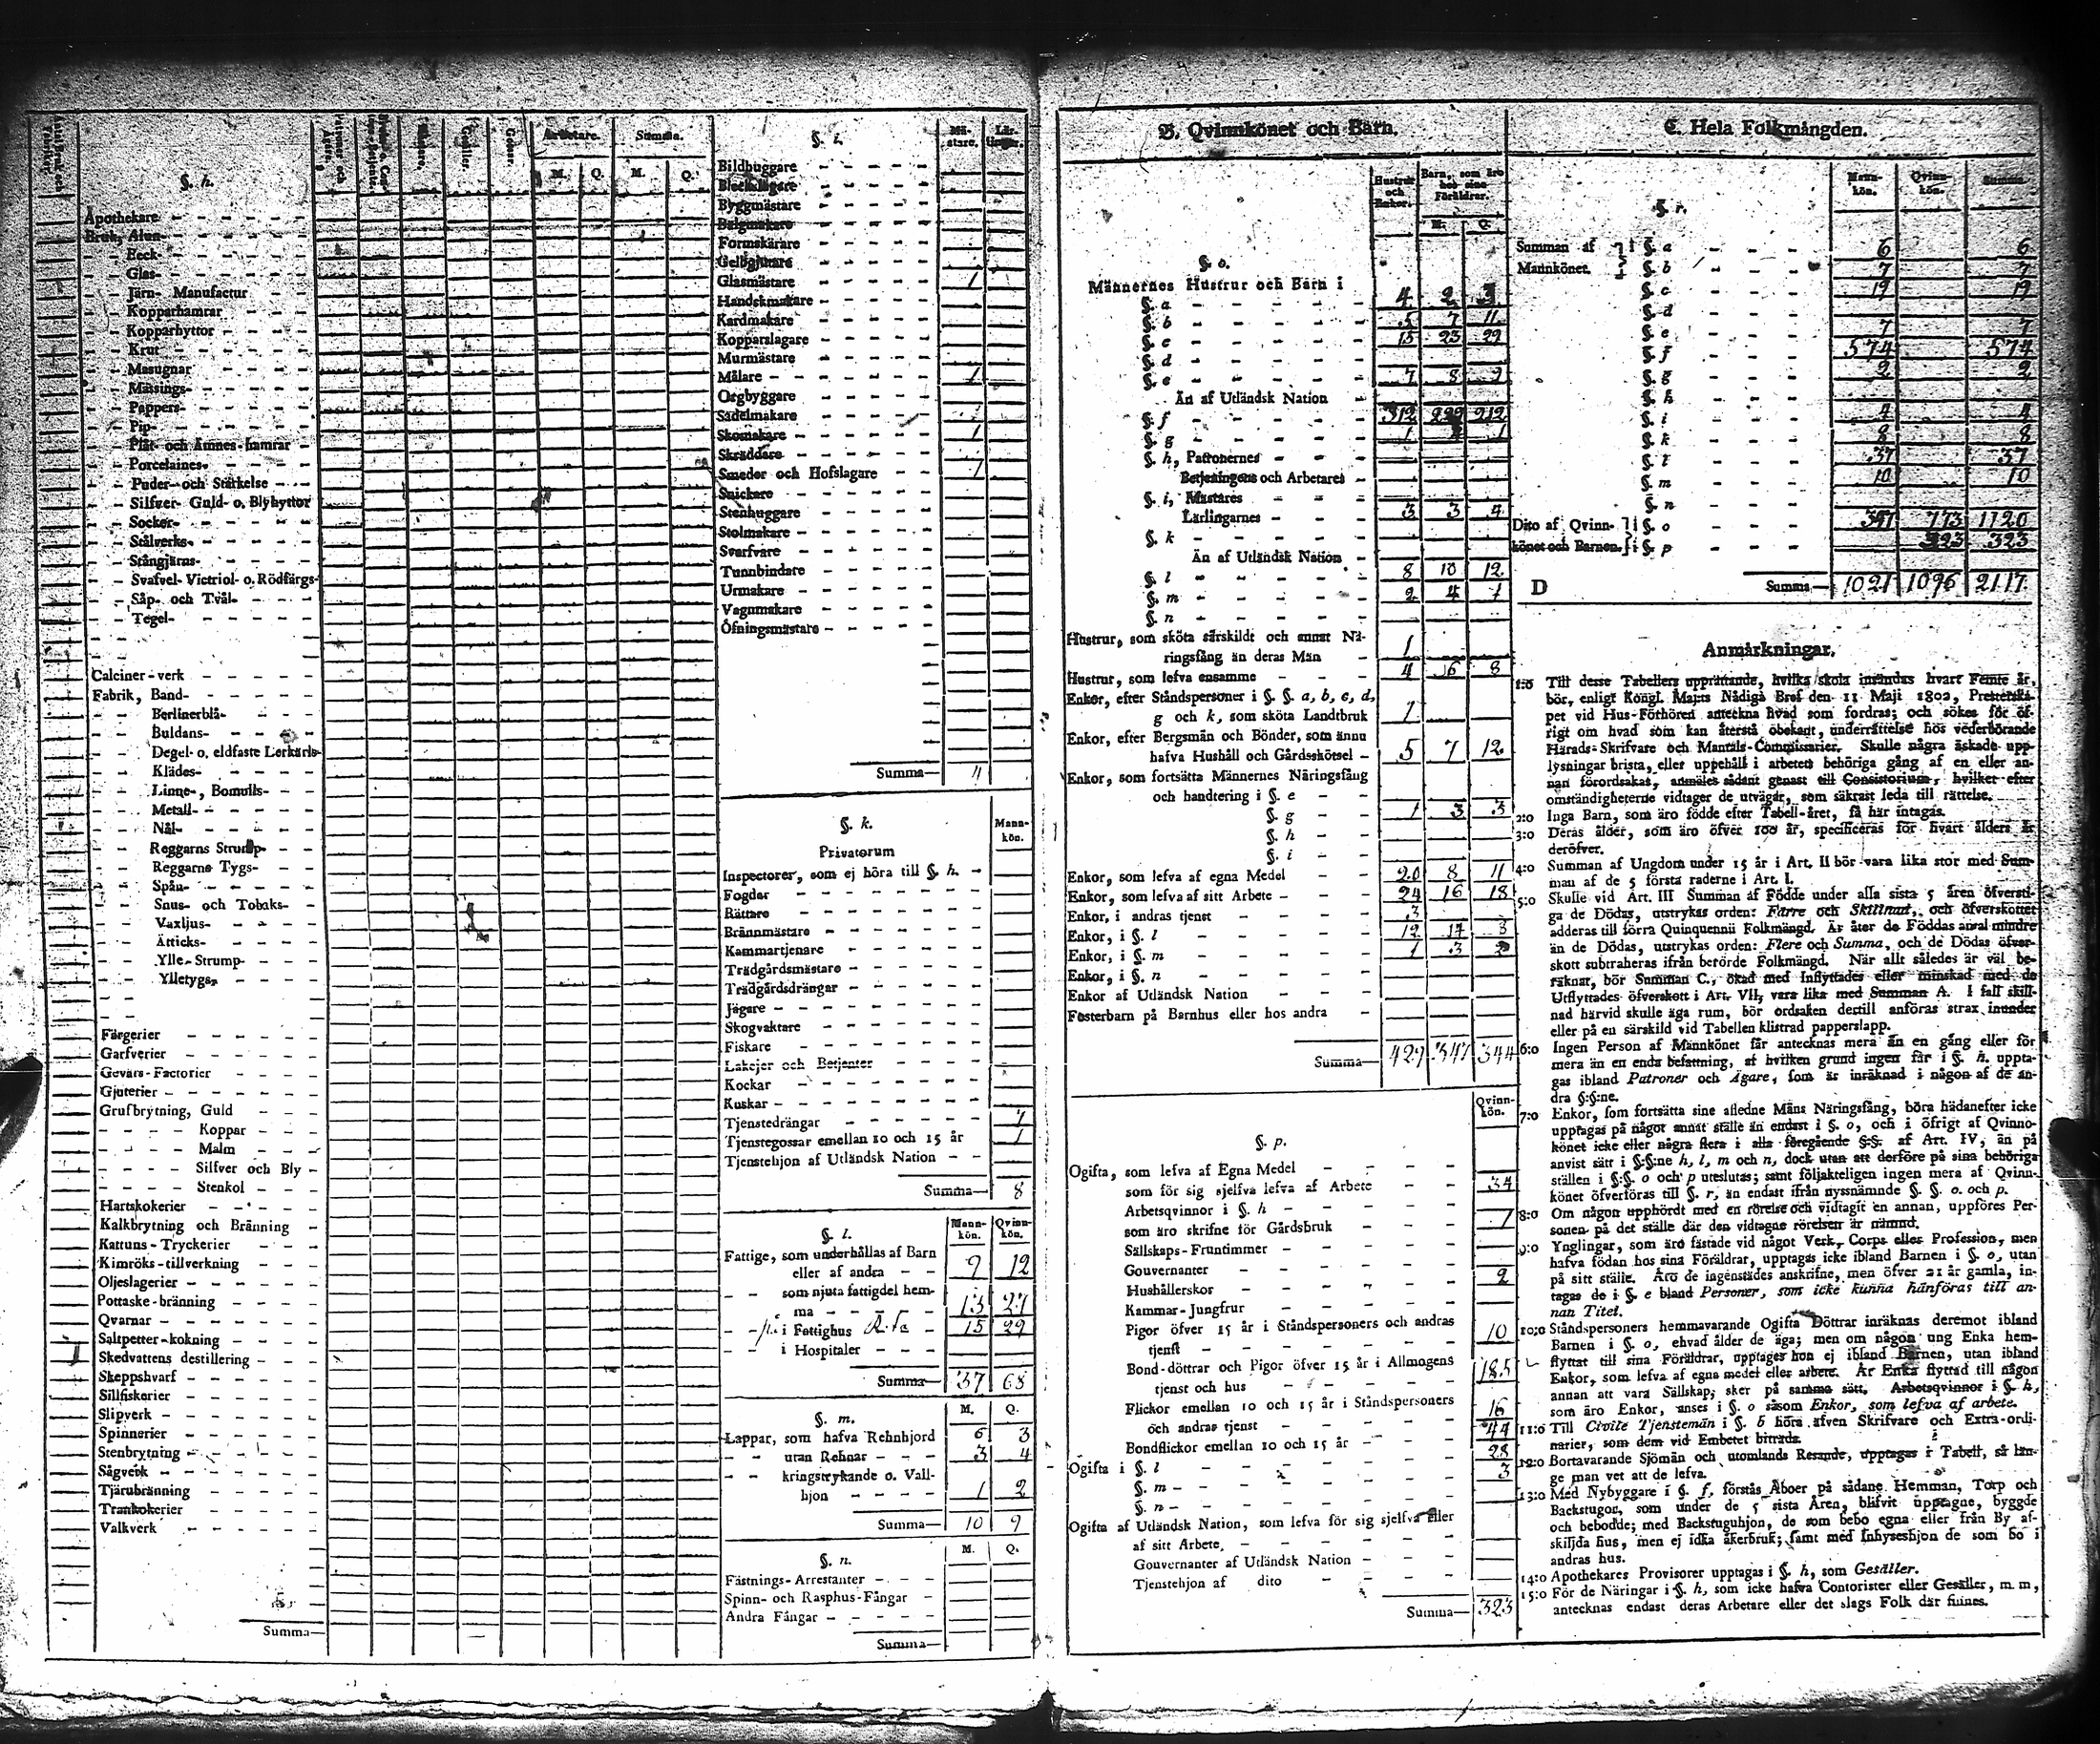 §. h.
Arbetare.
Summa.
M.
Q.
M.
Q.
Apothekare
Bruk, Alun-
Beck-
Glas-
Järn- Manufactur
Kopparhamrar
Kopparhyttor
Krut
Masugnar
Mässings-
Pappers-
Pip-
Plåt- och Ämnes-hamrar
Porcelaines-
Puder- och Stärkelse
Silfver- Guld- o. Blyhyttor
Socker-
Stålverks-
Stångjärns-
Svafvel- Victriol- o. Rödfärgs-
Såp- och Tvål-
Tegel-
Calciner-verk
Fabrik, Band-
Berlinerblå-
Buldans-
Degel- o. eldfaste Lerkärls-
Klädes-
Linne-, Bomulls-
Metall-
Nål-
Reggarns Strump-
Reggarns Tygs-
Spån-
Snus- och Tobaks-
Vaxljus-
Ätticks-
Ylle-Strump-
Ylletygs-
Färgerier
Garfverier
Gevärs-Factorier
Gjuterier
Grufbrytning, Guld
Koppar
Malm
Silfver och Bly
Stenkol
Hartskokerier
Kalkbrytning och Bränning
Kattuns-Tryckerier
Kimröks-tillverkning
Oljeslagerier
Pottaske-bränning
Qvarnar
Saltpetter-kokning
Skedvattens destillering
Skeppshvarf
Sillfiskerier
Slipverk
Spinnerier
Stenbrytning
Sågverk
Tjärubränning
Trankokerier
Valkverk
Summa—
§. i.
Mästare.
Lärlingar.
Bildhuggare
Bleckslagare
Byggmästare
Balgmakare
Formskärare
Gelbgjutare
Glasmästare 1
Handskmakare
Kardmakare
Kopparslagare
Murmästare
Målare 1
Orgbyggare
Sadelmakare
Skomakare 1
Skräddare
Smeder och Hofslagare 1
Snickare
Stenhuggare
Stolmakare
Svarfvare
Tunnbindare
Urmakare
Vagnmakare
Öfningsmästare
Summa— 4
§. k.
Mannkön.
Privatorum
Inspectorer, som ej höra till §. h.
Fogdar
Rättare
Brännmästare
Kammartjenare
Trädgårdsmästare
Trädgårdsdrängar
Jägare
Skogvaktare
Fiskare
Lakejer och Betjenter
Kockar
Kuskar
Tjenstedrängar 7
Tjenstegossar emellan 10 och 15 år 1
Tjenstehjon af Utländsk Nation
Summa— 8
§. l.
Mannkön.
Qvinnkön.
Fattige, som underhållas af Barn
eller af andra 9 12
som njuta fattigdel hem-
ma 13 27
i Fattighus 15 29
i Hospitaler
Summa— 37 68
§. m.
M.
Q.
Lappar, som hafva Rehnhjord 6 3
utan Rehnar 3 4
kringstrykande o. Vall-
hjon 1 2
Summa— 10 9
§. n.
M.
Q.
Fästnings-Arrestanter
Spinn- och Rasphus-Fångar
Andra Fångar
Summa—
B. Qvinnkönet och Barn.
Hustrur och Enkor.
Barn, som äro hos sine Föräldrar.
M.
Q.
§. o.
Männernes Hustrur och Barn i
§. a 4 2 3
§. b 5 7 11
§. c 15 23 29
§. d
§. e 7 8 9
Än af Utländsk Nation
§. f 312 229 212
§. g 1 1
§. h, Patronernes
Betjeningens och Arbetares
§. i, Mästares 3 3 4
Lärlingarnes
§. k
Än af Utländsk Nation
§. l 8 10 12
§. m 2 4 1
§. n
Hustrur, som sköta särskildt och annat Nä-
ringsfång än deras Män 1
Hustrur, som lefva ensamme 4 6 8
Enkor, efter Ståndspersoner i §. §. a, b, c, d,
g och k, som sköta Landtbruk 1
Enkor, efter Bergsmän och Bönder, som ännu
hafva Hushåll och Gårdsskötsel 5 7 12
Enkor, som fortsätta Männernes Näringsfång
och handtering i §. e
§. g 1 3 3
§. h
§. i
Enkor, som lefva af egna Medel 20 8 11
Enkor, som lefva af sitt Arbete 24 16 18
Enkor, i andras tjenst 3
Enkor, i §. l 12 17 3
Enkor, i §. m 1 3 2
Enkor, i §. n
Enkor af Utländsk Nation
Fosterbarn på Barnhus eller hos andra
Summa— 429 347 344
§. p.
Qvinnkön.
Ogifta, som lefva af Egna Medel
som för sig sjelfva lefva af Arbete 34
Arbetsqvinnor i §. h
som äro skrifne för Gårdsbruk 1
Sällskaps-Fruntimmer
Gouvernanter
Hushållerskor 2
Kammar-Jungfrur
Pigor öfver 15 år i Ståndspersoners och andras
tjenst 10
Bond-döttrar och Pigor öfver 15 år i Allmogens
tjenst och hus 185
Flickor emellan 10 och 15 år i Ståndspersoners
och andras tjenst 16
Bondflickor emellan 10 och 15 år 44
Ogifta i §. l 28
§. m 3
§. n
Ogifta af Utländsk Nation, som lefva för sig sjelfva eller
af sitt Arbete
Gouvernanter af Utländsk Nation
Tjenstehjon af dito
Summa— 323
C. Hela Folkmängden.
Mannkön.
Qvinnkön.
Summa
§. r.
Summan af §. a 6 6
Mannkönet. §. b 7 7
§. c 19 19
§. d
§. e 7 7
§. f 574 574
§. g 2 2
§. h
§. i 4 4
§. k 8 8
§. l 37 37
§. m 10 10
§. n
Dito af Qvinn- §. o 347 773 1120
könet och Barnen. §. p 323 323
D Summa— 1021 1096 2117
Anmärkningar.
1:o Till desse Tabellers upprättande, hvilka skola insändas hvart Femte år,
bör, enligt Kongl. Maj:ts Nådiga Bref den 11 Maji 1802, Presterska-
pet vid Hus-Förhören anteckna hvad som fordras; och sökes för öf-
rigt om hvad som kan återstå obekant, underrättelse hos vederbörande
Härads-Skrifvare och Mantals-Commissarier. Skulle några äskade upp-
lysningar brista, eller uppehåll i arbetets behöriga gång af en eller an-
nan förordsakas, anmäles sådant genast till Consistorium, hvilket efter
omständigheterne vidtager de utvägar, som säkrast leda till rättelse.
2:o Inga Barn, som äro födde efter Tabell-året, få här intagas.
3:o Deras ålder, som äro öfver 100 år, specificeras för hvart ålders år
deröfver.
4:o Summan af Ungdom under 15 år i Art. II bör vara lika stor med Sum-
man af de 5 första raderne i Art. I.
5:o Skulle vid Art. III Summan af Födde under alla sista 5 åren öfversti-
ga de Dödas, utstrykas orden: Färre och Skillnad, och öfverskottet
adderas till förra Quinquennii Folkmängd. Är åter de Föddas antal mindre
än de Dödas, utstrykas orden: Flere och Summa, och de Dödas öfver-
skott subtraheras ifrån berörde Folkmängd. När allt således är väl be-
räknat, bör Summan C., ökad med Inflyttades eller minskad med de
Utflyttades öfverskott i Art. VII, vara lika med Summan A. I fall skill-
nad härvid skulle äga rum, bör ordsaken dertill anföras strax inunder
eller på en särskild vid Tabellen klistrad papperslapp.
6:o Ingen Person af Mannkönet får antecknas mera än en gång eller för
mera än en enda befattning, af hvilken grund ingen får i §. h. uppta-
gas ibland Patroner och Ägare, som är inräknad i någon af de an-
dra §:§:ne.
7:o Enkor, som fortsätta sine afledne Mäns Näringsfång, böra hädanefter icke
upptagas på något annat ställe än endast i §. o, och i öfrigt af Qvinno-
könet icke eller några flera i alla föregående §:§. af Art. IV, än på
anvist sätt i §:§:ne h, l, m och n, dock utan att derföre på sina behöriga
ställen i §:§. o och p uteslutas; samt följakteligen ingen mera af Qvinn-
könet öfverföras till §. r, än endast ifrån nyssnämnde §. §. o. och p.
8:o Om någon upphördt med en rörelse och vidtagit en annan, uppföres Per-
sonen på det ställe där den vidtagne rörelsen är nämnd.
9:o Ynglingar, som äro fästade vid något Verk, Corps eller Profession, men
hafva födan hos sina Föräldrar, upptagas icke ibland Barnen i §. o, utan
på sitt ställe. Äro de ingenstädes anskrifne, men öfver 21 år gamla, in-
tagas de i §. e bland Personer, som icke kunna hänföras till an-
nan Titel.
10:o Ståndspersoners hemmavarande Ogifta Döttrar inräknas deremot ibland
Barnen i §. o, ehvad ålder de äga; men om någon ung Enka hem-
flyttat till sina Föräldrar, upptages hon ej ibland Barnen, utan ibland
Enkor, som lefva af egna medel eller arbete. Är Enka flyttad till någon
annan att vara Sällskap, sker på samma sätt. Arbetsqvinnor i §. h,
som äro Enkor, anses i §. o såsom Enkor, som lefva af arbete.
11:o Till Civile Tjenstemän i §. b höra äfven Skrifvare och Extra-ordi-
narier, som dem vid Embetet biträda.
12:o Bortavarande Sjömän och utomlands Resande, upptagas i Tabell, så län-
ge man vet att de lefva.
13:o Med Nybyggare i §. f, förstås Åboer på sådane Hemman, Torp och
Backstugor, som under de 5 sista Åren, blifvit upptagne, byggde
och bebodde; med Backstuguhjon, de som bebo egna eller från By af-
skiljda hus, men ej idka åkerbruk; samt med Inhyseshjon de som bo i
andras hus.
14:o Apothekares Provisorer upptagas i §. h, som Gesäller.
15:o För de Näringar i §. h, som icke hafva Contorister eller Gesäller, m. m,
antecknas endast deras Arbetare eller det slags Folk där finnes.